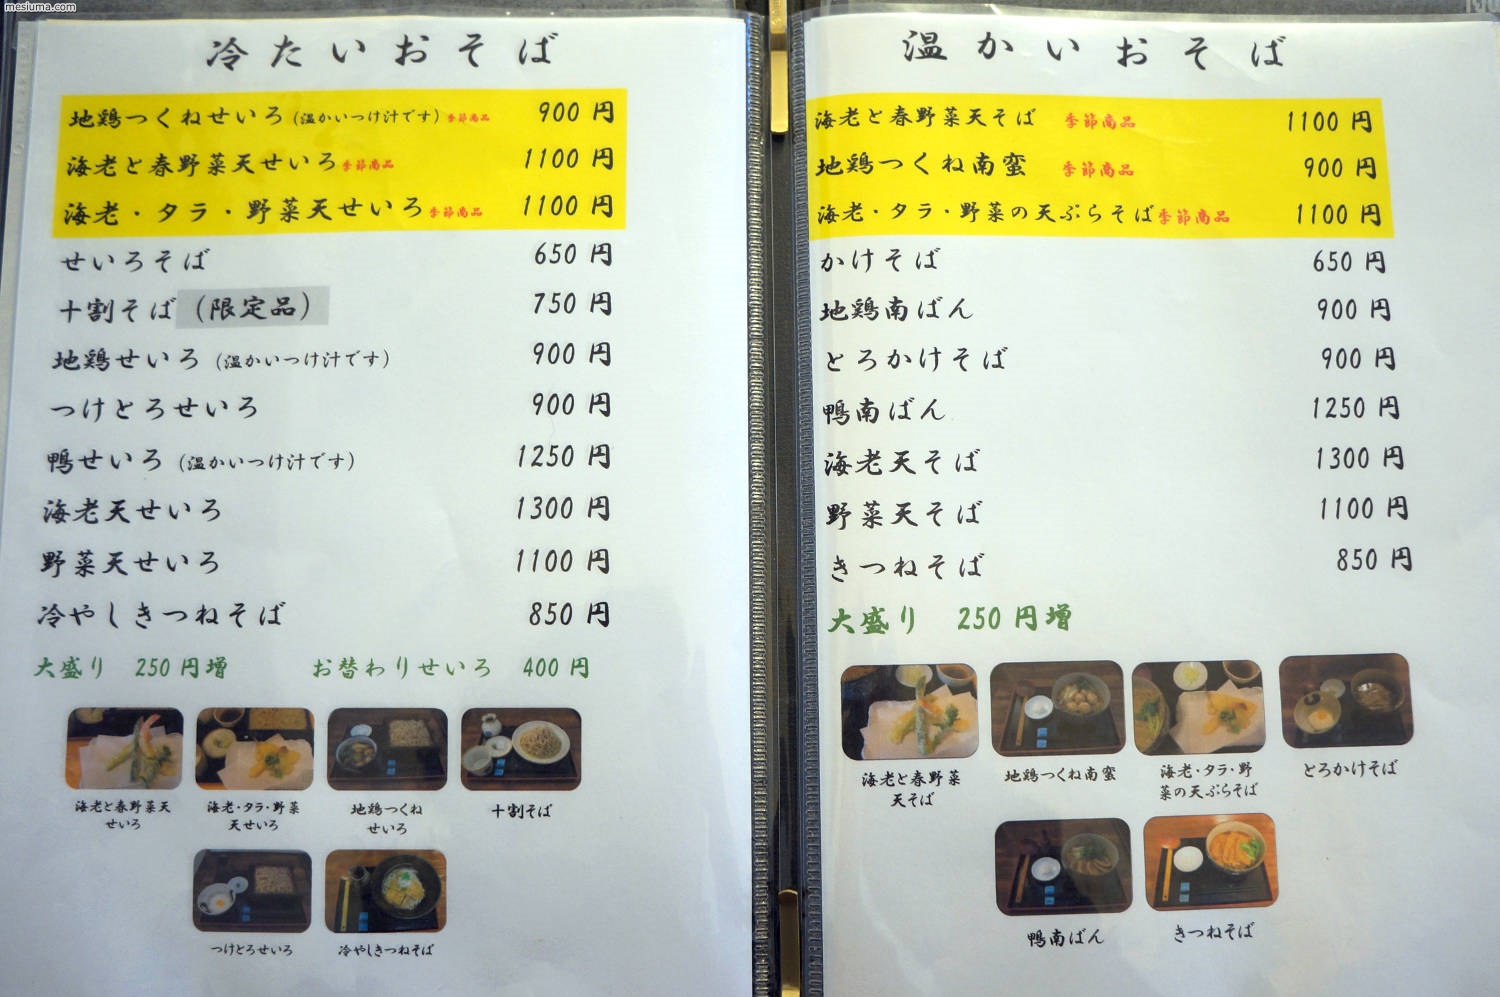 mesiuma.com
冷たいおそば
地鶏つくねせいろ(温かいつけ汁です)季節商品 900円
海老と春野菜天せいろ季節商品 1100円
海老・タラ・野菜天せいろ季節商品 1100円
せいろそば 650円
十割そば(限定品) 750円
地鶏せいろ(温かいつけ汁です) 900円
つけとろせいろ 900円
鴨せいろ(温かいつけ汁です) 1250円
海老天せいろ 1300円
野菜天せいろ 1100円
冷やしきつねそば 850円
大盛り 250円増 お替わりせいろ 400円
海老と春野菜天
せいろ
海老・タラ・野菜
天せいろ
地鶏つくね
せいろ
十割そば
つけとろせいろ
冷やしきつねそば
温かいおそば
海老と春野菜天そば 季節商品 1100円
地鶏つくね南蛮 季節商品 900円
海老・タラ・野菜の天ぷらそば季節商品 1100円
かけそば 650円
地鶏南ばん 900円
とろかけそば 900円
鴨南ばん 1250円
海老天そば 1300円
野菜天そば 1100円
きつねそば 850円
大盛り 250円増
海老と春野菜
天そば
地鶏つくね南蛮
海老・タラ・野
菜の天ぷらそば
とろかけそば
鴨南ばん
きつねそば